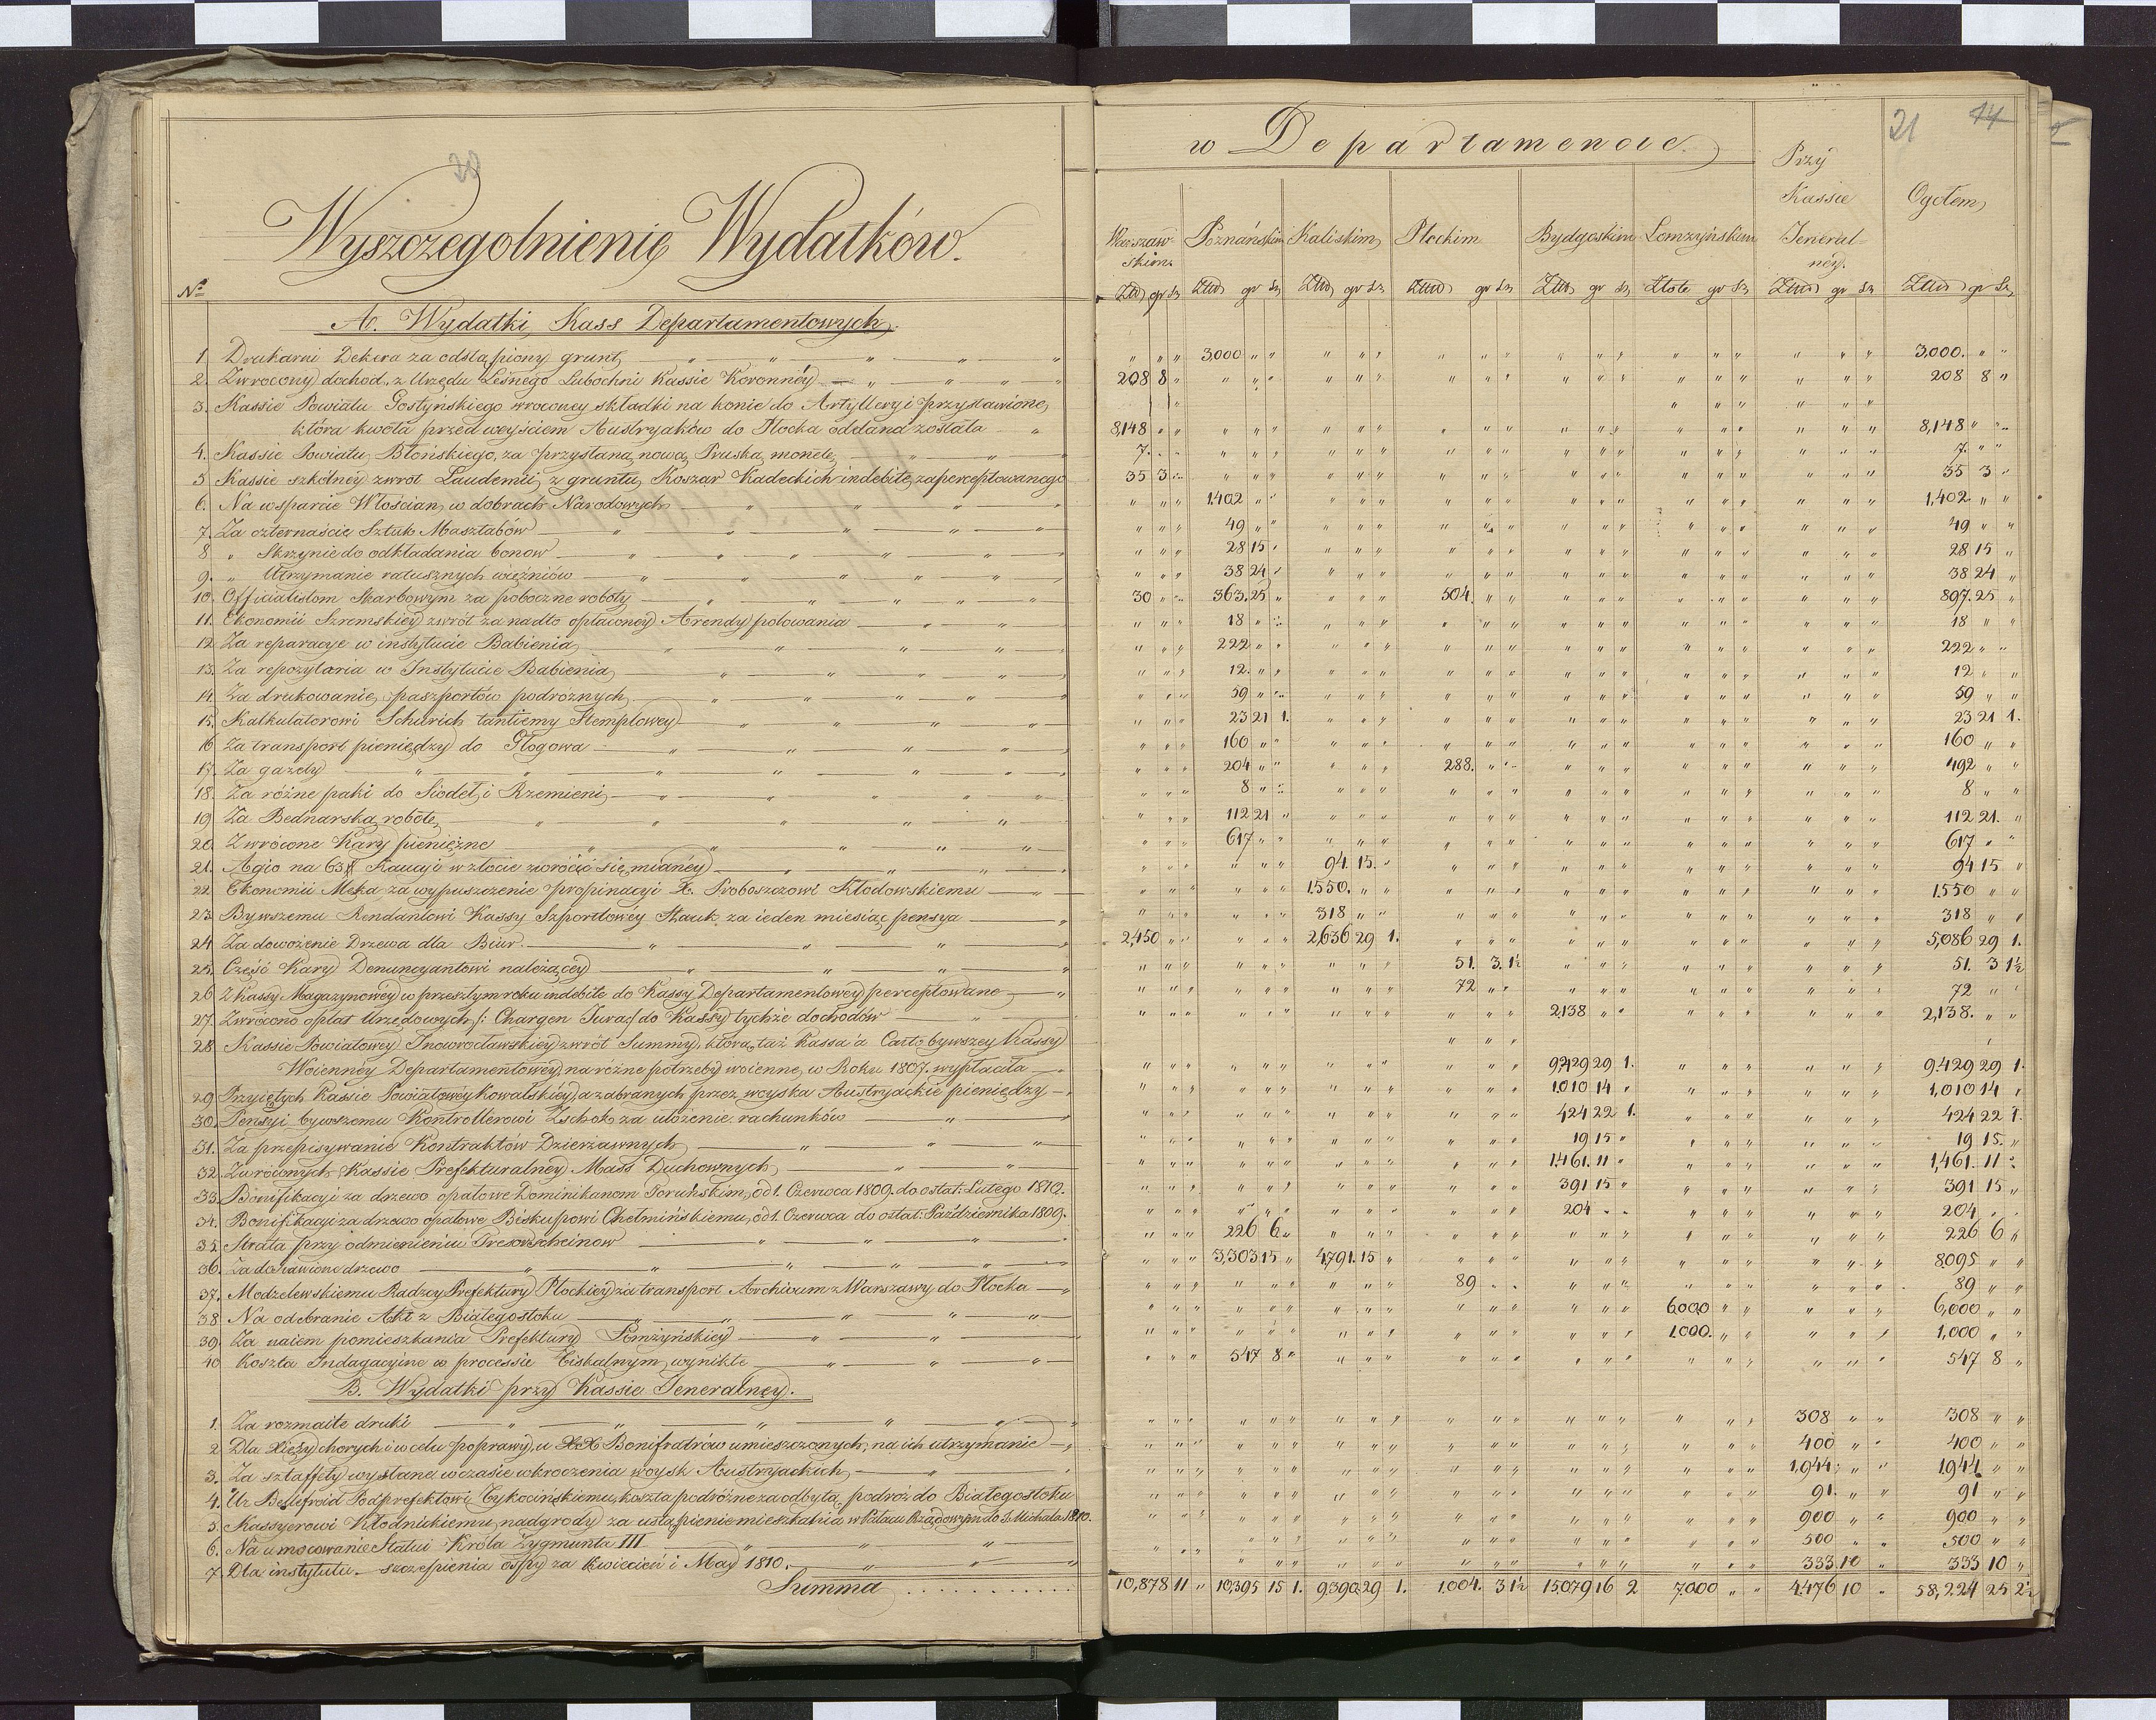 28
Wyszczegolnienie Wydatków.
Nº
A. Wydatki Kass Departamentowych.
1 Drukarni Dekera za odstąpiony grunt
2. Zwrocony dochod z Urzędu Leśnego Lubochni Kassie Koronnéy
3. Kassie Powiatu Gostyńskiego wroconey składki na konie do Artylleryi przystawione,
która kwota przed weyściem Austryaków do Płocka oddana została
4. Kassie Powiatu Błońskiego, za przysłaną nową Pruską monetę
5 Kassie szkolney zwrot Laudemii z gruntu Koszar Kadeckich indebite zaperceptowanego
6. Na wsparcie Włościan w dobrach Narodowych
7. Za czternaście Sztuk Masztabów
8 " Skrzynie do odkładania bonow
9. " Utrzymanie ratusznych więźniów
10. Officialistom Skarbowym za poboczne roboty
11. Ekonomii Szremskiey zwrót za nadto opłaconey Arendy polowania
12. Za reparacye w instytucie Babienia
13. Za repozytoria w Instytucie Babienia
14. Za drukowanie paszportów podróżnych
15. Kalkulatorowi Schurich tantiemy Stemplowey
16 Za transport pieniędzy do Głogowa
17. Za gazety
18. Za różne paki do Siodeł i Rzemieni
19 Za Bednarską robotę
20. Zwrócone Kary pieniężne
21. Agio na 63 # Kaucyi w złocie zwrócić się mianéy
22. Ekonomii Męka za wypuszczenie propinacyi X. Proboszczowi Kłodowskiemu
23. Bywszemu Rendantowi Kassy Szportlowéy Skauk za ieden miesiąc pensya
24 Za dowożenie Drzewa dla Biur.
25. Część Kary Denuncyantowi należącéy
26 Z Kassy Magazynowéy w przeszłym roku indebite do Kassy Departamentowey perceptowane
27. Zwrócono opłat Urzędowych /: Chargen Jura :/ do Kassy tychże dochodów
28. Kassie Powiatowey Inowrocławskiey zwrót Summy, którą taż Kassa a Conto bywszey Kassy
Woienney Departamentowey na różne potrzeby woienne, w Roku 1807. wypłaciła
29 Przyiętych Kassie Powiatowéy Kowalskiéy, a zabranych przez woyska Austryackie pieniędzy
30. Pensyi bywszemu Kontrollerowi Zschok za ułożenie rachunków
31. Za przepisywanie Kontraktów Dzierżawnych
32. Zwróconych Kassie Prefekturalney Mass Duchownych
33. Bonifikacyi za drzewo opałowe Dominikanom Toruńskim, od 1. Czerwca 1809. do ostat: Lutego 1810.
34. Bonifikacyi za drzewo opałowe Biskupowi Chełmińskiemu, od 1. Czerwca do ostat: Października 1809.
35. Strata przy odmienieniu Tresorscheinow
36. Za dostawione drzewo
37. Modzelewskiemu Radzcy Prefektury Płockiey za transport Archiwum z Warszawy do Płocka
38 Na odebranie Akt z Białegostoku
39. Za naiem pomieszkania Prefektury Łomżyńskiey
40 Koszta Indagacyine w processie Fiskalnym wynikłe
B. Wydatki przy Kassie Jeneralnéy.
1. Za rozmaite druki
2 Dla Xięży chorych i w celu poprawy u XX Bonifratrów umieszczonych, na ich utrzymanie
3. Za sztaffety wysłane w czasie wkroczenia woysk Austryackich
4. Ur Bellefroid Podprefektowi Tykocińskiemu, koszta podróżne za odbytą podróż do Białegostoku
5. Kassyerowi Kłodnickiemu, nadgrody za ustąpienie mieszkania w Pałacu Rządowym do S. Michała 1810.
6. Na umocowanie Statui Króla Zygmunta III
7. Dla instytutu szczepienia ospy za Kwiecień i May 1810.
Summa
w Departamencie.
Przy Kassie Jeneralnéy.
21 14
Ogółem
Warszawskim. Poznańskim Kaliskim Płockim Bydgoskim Łomżyńskim
Złote gr Sz Złote gr Sz Złote gr Sz Złote gr Sz Złote gr Sz Złote gr Sz Złote gr Sz Złote gr Sz
3,000 3,000.
208 8 208 8
8,148 8,148
7. 7.
35 3 35 3
1,402 1,402
49 49
28 15 28 15
38 24 38 24
30 363.25 504. 897.25
18 18
222 222
12. 12
59 59
23 21 1. 23 21 1.
160 160
204 288. 492
8 8
112 21 112 21.
617 617
94. 15. 94 15
1550. 1550
318 318
2,450 2,636 29 1. 5,086 29 1.
51. 3. 1½ 51. 3 1½
72 72
2,138 2,138.
9,429 29 1. 9,429 29 1.
1,010 14 1,010 14
424 22 1. 424 22 1.
19 15 19 15.
1,461. 11 1,461. 11
391 15 391 15
204 204
226 6 226 6
3,303 15 4,791. 15 8,095
89 89
6,000 6,000
1,000. 1,000
547 8 547 8
308 308
400 400
1,944 1,944
91. 91
900 900
500 500
333.10 333 10
10,878 11 10,395 15 1. 9,390 29 1. 1,004. 3 1½ 15,079 16 2 7,000 4,476 10 58,224 25 2½